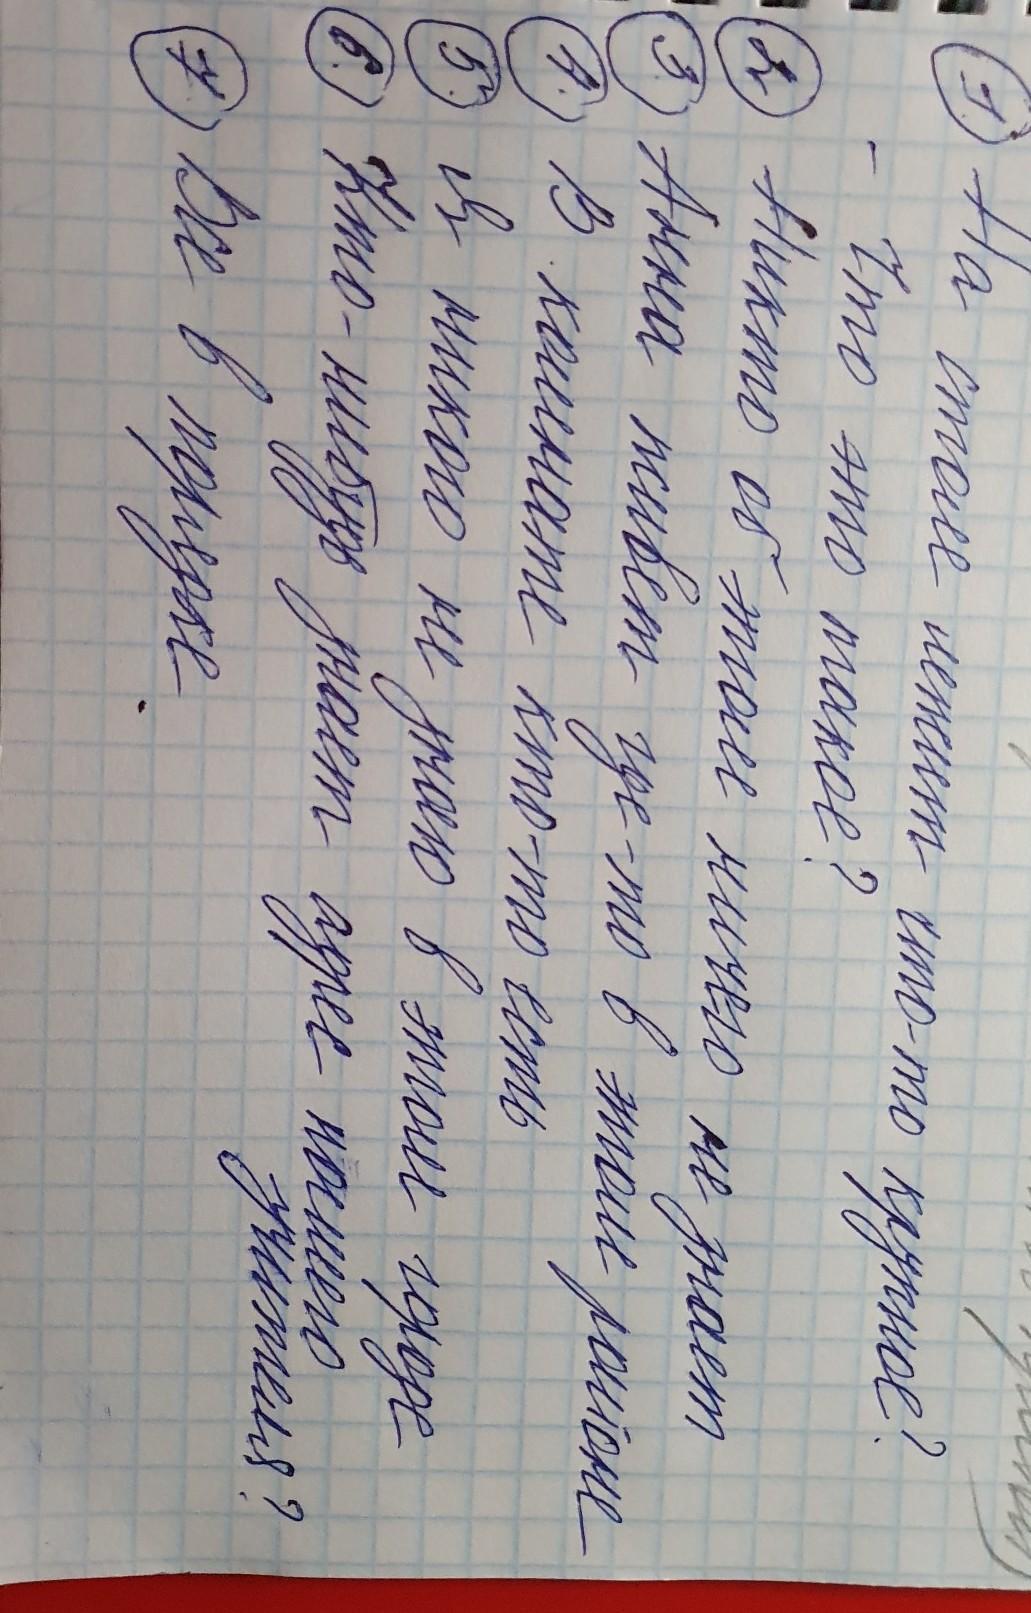 1. На столе лежит что-то круглое?
- Что это такое?
2. Никто об этом ничего не знает
3. Анна живет где-то в этом районе
4. В комнате кто-то есть
5. Я никого не знаю в этом городе
6. Кто-нибудь знает адрес нашего
учителя?
7. Все в порядке.